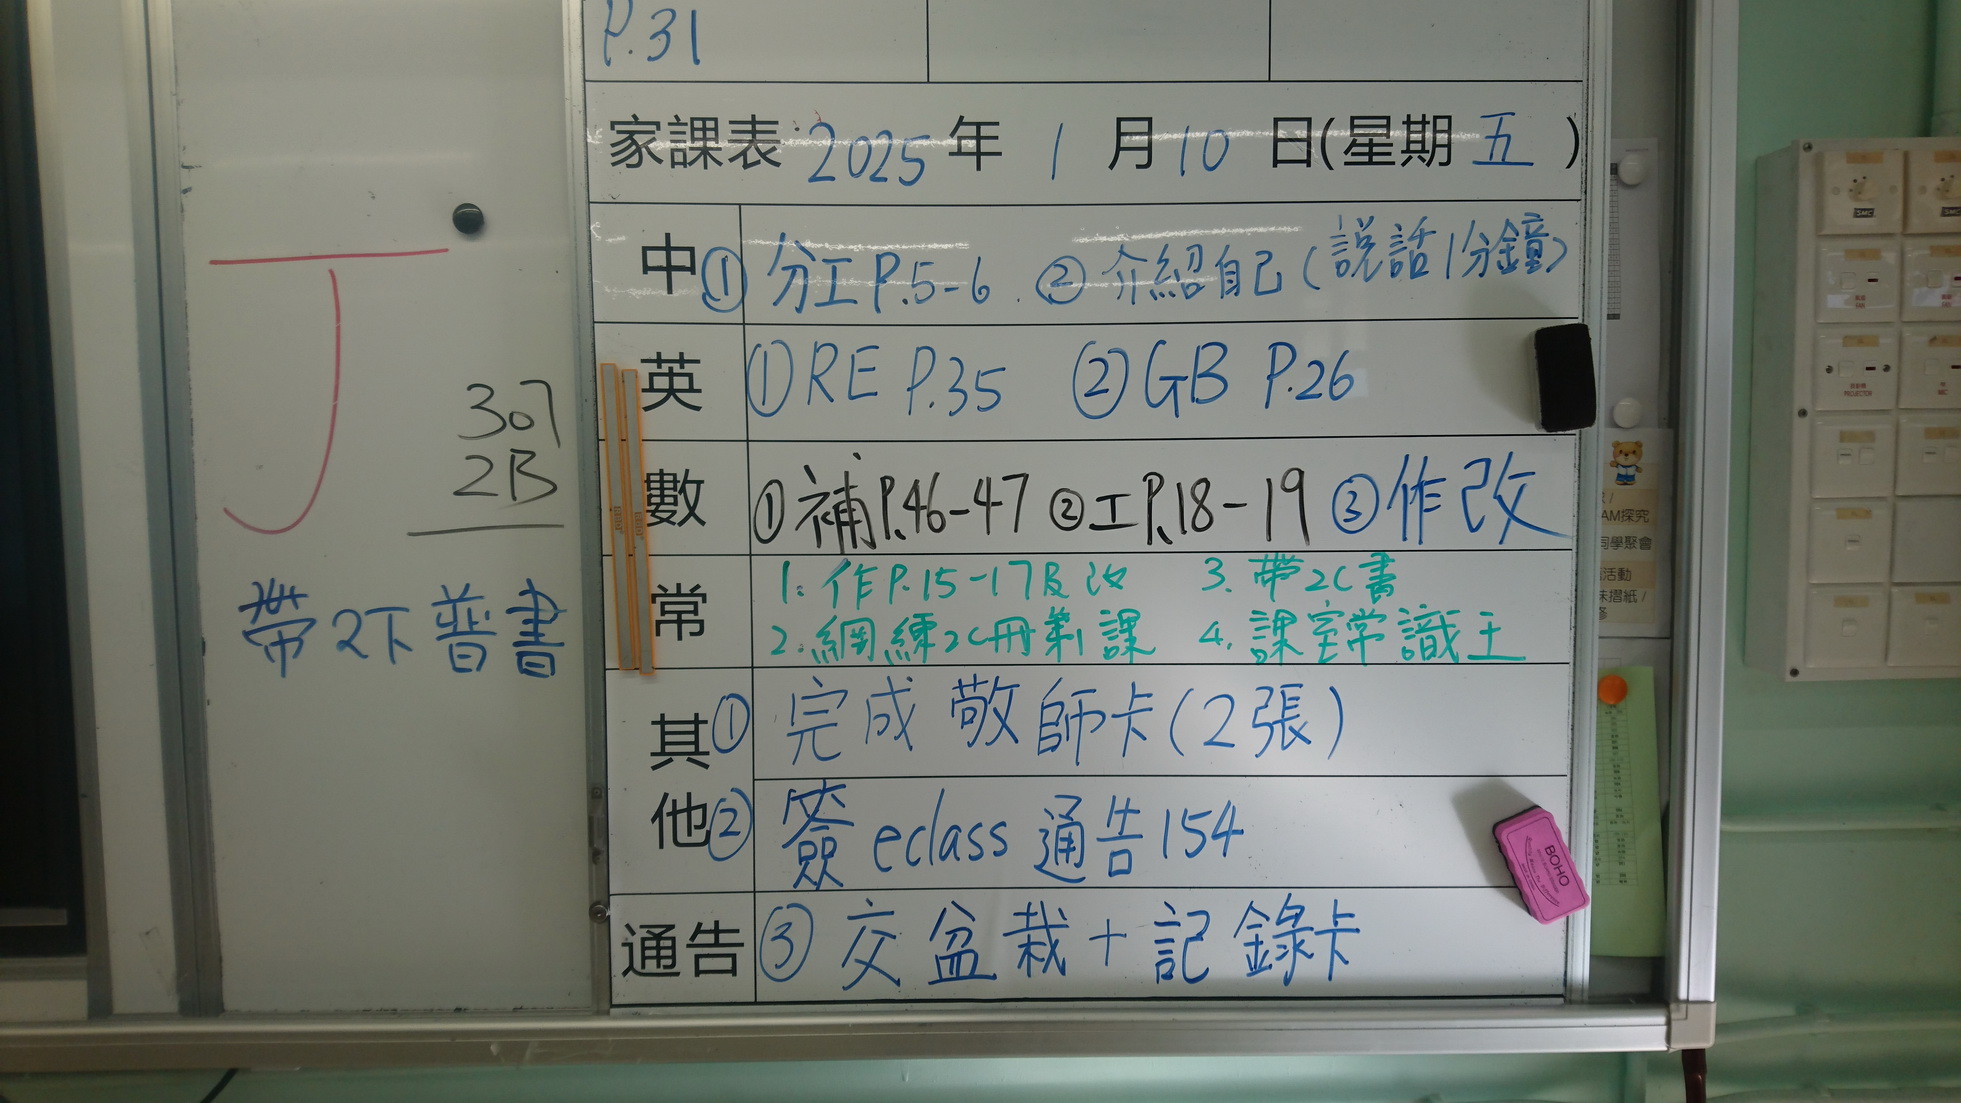 P.31
家課表 2025 年 1 月 10 日(星期 五 )
中 ① 分工P.5-6 ② 介紹自己(說話1分鐘)
英 ① RE P.35 ② GB P.26
數 ① 補P.46-47 ② 工P.18-19 ③ 作改
常 1. 作P.15-17及改 3. 帶2C書
2. 網練2C冊第1課 4. 課室常識王
其他 ① 完成敬師卡(2張)
② 簽eclass通告154
通告 ③ 交盆栽+記錄卡
307
2B
帶2下普書
BOHO
AM探究
同學聚會
活動
摺紙/